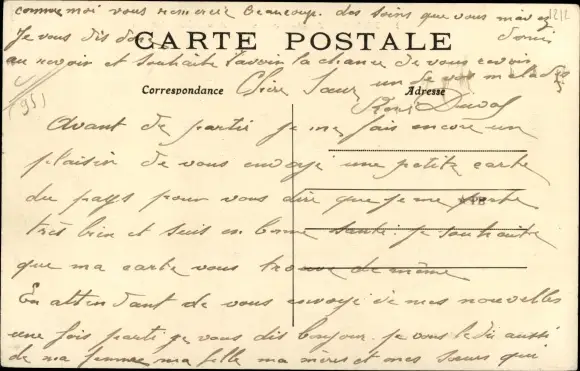 comme moi vous remercie Beaucoup des soins que vous m'avez
donnés
Je vous dis donc
CARTE POSTALE
au revoir et souhaite d'avoir la chance de vous revoir
un de vos malades
Correspondance
Chère Sœur
Adresse
René Duval
(95)
Avant de partir je me fais encore un
plaisir de vous envoyé une petite carte
du pays pour vous dire que je me porte
très bien et suis en bonne santé. je souhaite
que ma carte vous trouve de même
En attendant de vous envoyé de mes nouvelles
une fois parti je vous dis bonjour. je vous le dis aussi
de ma femme ma fille ma mère et mes sœurs qui